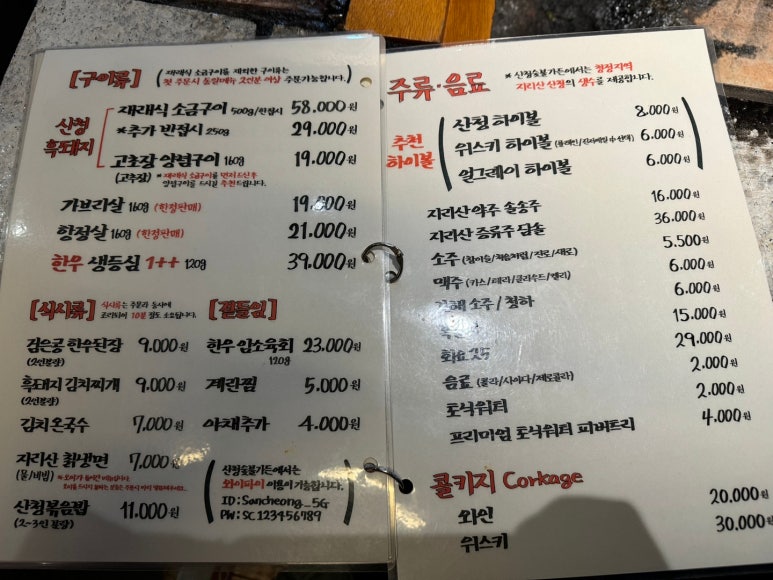 [구이류]
( 재래식 소금구이를 제외한 구이류는
첫 주문시 동일메뉴 2인분 이상 주문가능합니다. )
산청
흑돼지
재래식 소금구이 500g/한접시 58.000원
*추가 반접시 250g 29.000원
고초장 양념구이 160g 19.000원
(고추장) * 재래식 소금구이를 먼저드신후
양념구이를 드시길 추천드립니다.
가브리살 160g (한정판매) 19.000원
항정살 160g (한정판매) 21.000원
한우 생등심 1++ 120g 39.000원
[식사류] 식사류는 주문과 동시에
조리되어 10분 정도 소요됩니다.
검은콩 한수된장 9.000원
(2인분량)
흑돼지 김치찌개 9.000원
(2인분량)
김치온국수 7.000원
지리산 칡냉면 7.000원
(물/비빔)
산청볶음밥 11.000원
(2~3인 분량)
[곁들임]
한우 입소육회 23.000원
120g
계란찜 5.000원
야채추가 4.000원
산청숯불가든에서는
와이파이 이용이 가능합니다.
ID: Sancheong_5G
PW: SC123456789
주류·음료 * 산청숯불가든에서는 청정지역
지리산 산청의 생수를 제공합니다.
추천
하이볼
산청 하이볼 8.000원
위스키 하이볼 (플레인/진저에일 中 선택) 6.000원
얼그레이 하이볼 6.000원
지리산 약주 솔송주 16.000원
지리산 증류주 담솔 36.000원
소주 (참이슬/처음처럼/진로/새로) 5.500원
맥주 (카스/테라/클라우드/켈리) 6.000원
소주 / 청하 6.000원
15.000원
화요25 29.000원
음료 (콜라/사이다/제로콜라) 2.000원
토닉워터 2.000원
프리미엄 토닉워터 피버트리 4.000원
콜키지 Corkage
와인 20.000원
위스키 30.000원